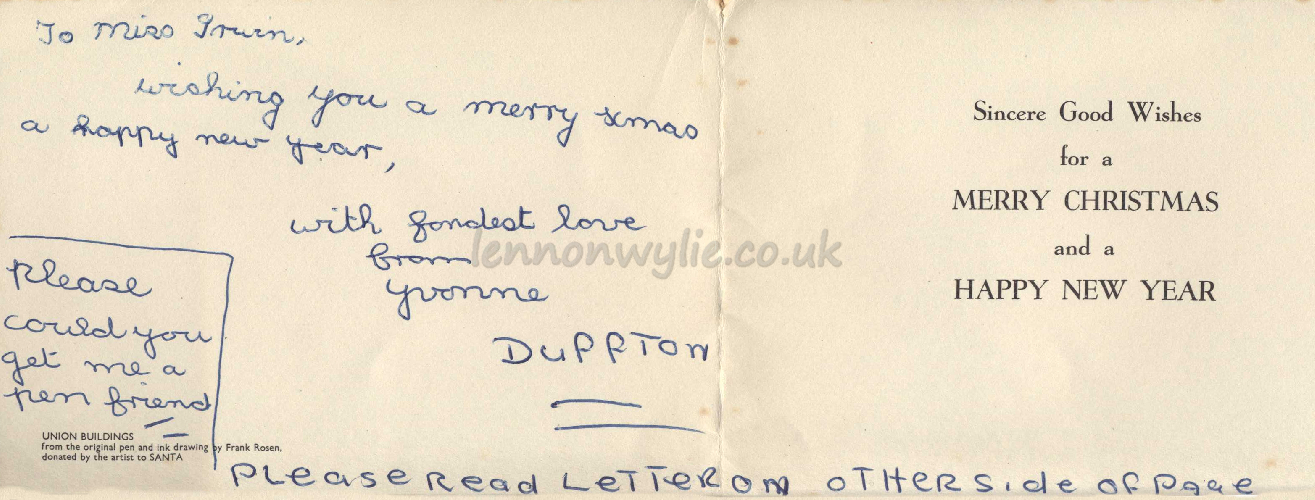 To Miss Irwin,
wishing you a merry xmas
a happy new year,
with fondest love
from
Yvonne
DUFFTON
Please
could you
get me a
pen friend
UNION BUILDINGS
from the original pen and ink drawing by Frank Rosen,
donated by the artist to SANTA
PLease Read LeTTeR ON OTHeR Side OF Page
Sincere Good Wishes
for a
MERRY CHRISTMAS
and a
HAPPY NEW YEAR
lennonwylie.co.uk